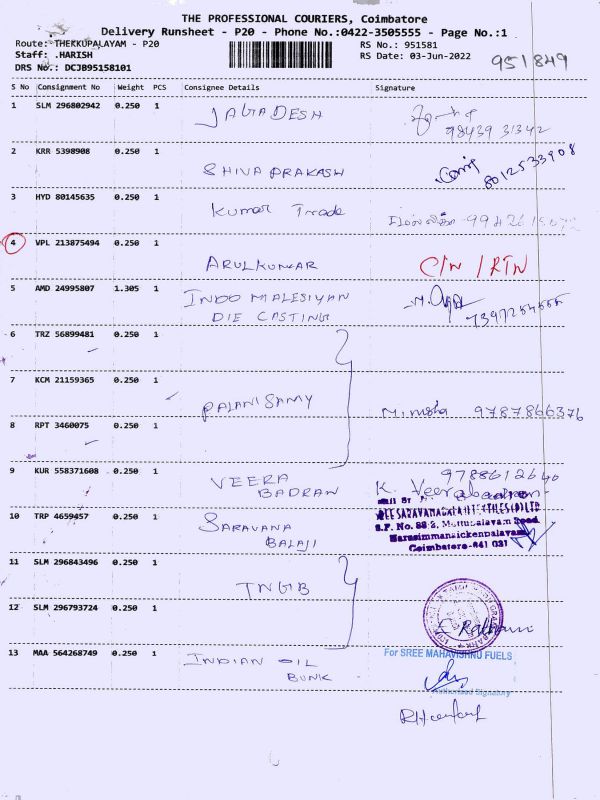 THE PROFESSIONAL COURIERS, Coimbatore
Delivery Runsheet - P20 - Phone No.:0422-3505555 - Page No.:1
Route: THEKKUPALAYAM - P20 RS No.: 951581
Staff: .HARISH RS Date: 03-Jun-2022 951849
DRS No.: DCJB95158101
S No Consignment No Weight PCS Consignee Details Signature
1 SLM 296802942 0.250 1 JAGADESH
98439 31342
2 KRR 5398908 0.250 1 SHIVA PRAKASH 8012533908
3 HYD 80145635 0.250 1 Kumar Trade
4 VPL 213875494 0.250 1 ARULKUMAR C/N / RTN
5 AMD 24995807 1.305 1 INDO MALESIYAN
DIE CASTING
6 TRZ 56899481 0.250 1
7 KCM 21159365 0.250 1 PALANISAMY 9787866376
8 RPT 3460075 0.250 1
9 KUR 558371608 0.250 1 VEERA
BADRAN K. Veerabadran
10 TRP 4659457 0.250 1 SARAVANA
BALAJI
S.F. No. 88/2, Mottupalayam Road
Narasimmanaickenpalayam
Coimbatore-641 031
11 SLM 296843496 0.250 1 TNGB
12 SLM 296793724 0.250 1
13 MAA 564268749 0.250 1 INDIAN OIL
BUNK
For SREE MAHAVISHNU FUELS
Authorised Signatory